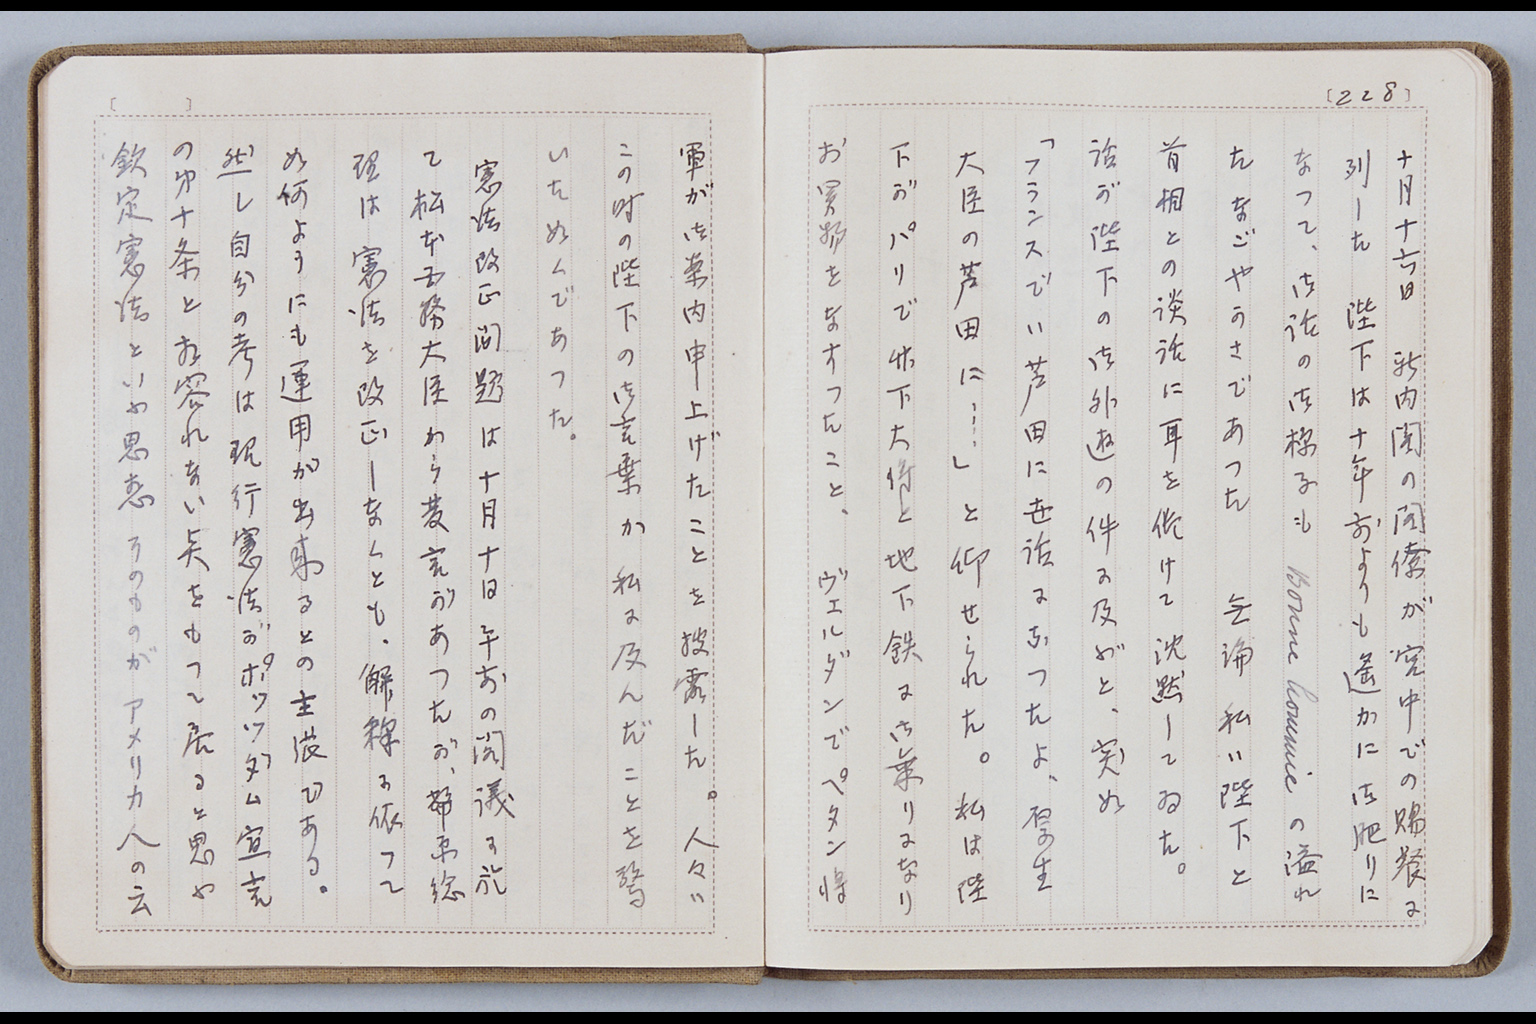 [228]
十月十六日 新内閣の閣僚が宮中での賜餐に
列した 陛下は十年前よりも遙かに御肥りに
なつて、御話の御様子も Bonne hommie の溢れ
たなごやかさであつた 無論 私は陛下と
首相との談話に耳を傾けて沈黙してゐた。
話が陛下の御外遊の件に及ぶと、突如
「フランスでは芦田に世話になつたよ、厚生
大臣の芦田に……」と仰せられた。私は陛
下がパリで 下大将と地下鉄に御乗りになり
お買物をなすつたこと、ヴェルダンでペタン将
[ ]
軍が御案内申上げたことを披露した。人々は
この時の陛下の御言葉が私に及んだことを驚
いた如くであつた。
憲法改正問題は十月十日午前の閣議に於
て松本国務大臣から発言があつたが、幣原総
理は憲法を改正しなくとも、解釋に依つて
如何ようにも運用が出来るとの主張である。
然し自分の考は現行憲法がポツツダム宣言
の第十条と相容れない点をもつて居ると思ふ
欽定憲法といふ思想そのものがアメリカ人の云